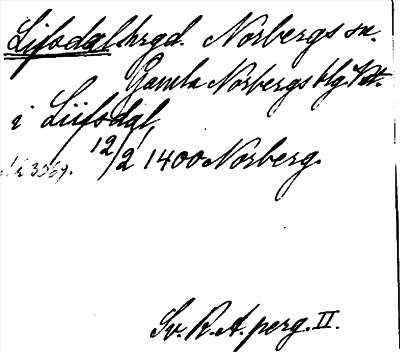 Lifsdal hrgd. Norbergs sn.
Gamla Norbergs blg. Vstm.
i Liifsdal,
12/2 1400 Norberg.
Nr 3569.
Sv. R. A. perg. II.